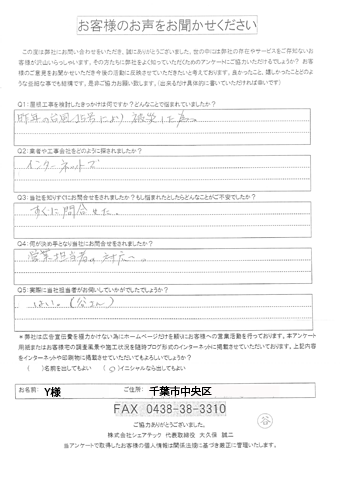 お客様のお声をお聞かせください
この度は弊社にお問い合わせをいただき、誠にありがとうございました。世の中には弊社の存在やサービスをご存知ないお
客様が沢山いらっしゃいます。その方たちに弊社をよく知っていただくためのアンケートにご協力いただけるでしょうか? お客
様のご意見をお聞かせいただき今後の活動に反映させていただきたいと考えております。良かったこと、嬉しかったことどのよ
うな些細な事でも結構です。是非ご協力お願い致します。(出来るだけ具体的に書いていただければ幸いです)
Q1:屋根工事を検討したきっかけは何ですか?どんなことで悩まれていましたか?
昨年の台風15号により被災した為。
Q2:業者や工事会社をどのように探されましたか?
インターネットで
Q3:当社を知りすぐにお問合せをされましたか?もし悩まれたとしたらどんなことがご不安でしたか?
すぐに問合せた。
Q4:何が決め手となり当社にお問合せをされましたか?
営業担当者の対応
Q5:実際に当社担当者がお伺いしていかがでしたでしょうか?
はい。
*弊社は広告宣伝費を極力かけない為にホームページだけを頼りにお客様への営業活動を行っております。本アンケート
用紙またはお客様宅の調査風景や施工状況を随時ブログ形式のインターネットに掲載させていただいております。上記内容
をインターネットや印刷物に掲載させていただいてもよろしいでしょうか?
( )名前を出してもよい (○)イニシャルなら出してもよい
お名前: Y様 ご住所: 千葉市中央区
FAX 0438-38-3310
ご協力ありがとうございました。
株式会社シェアテック 代表取締役 大久保 誠二
当アンケートで取得したお客様の個人情報は関係法規に基づき厳正に管理いたします。
谷